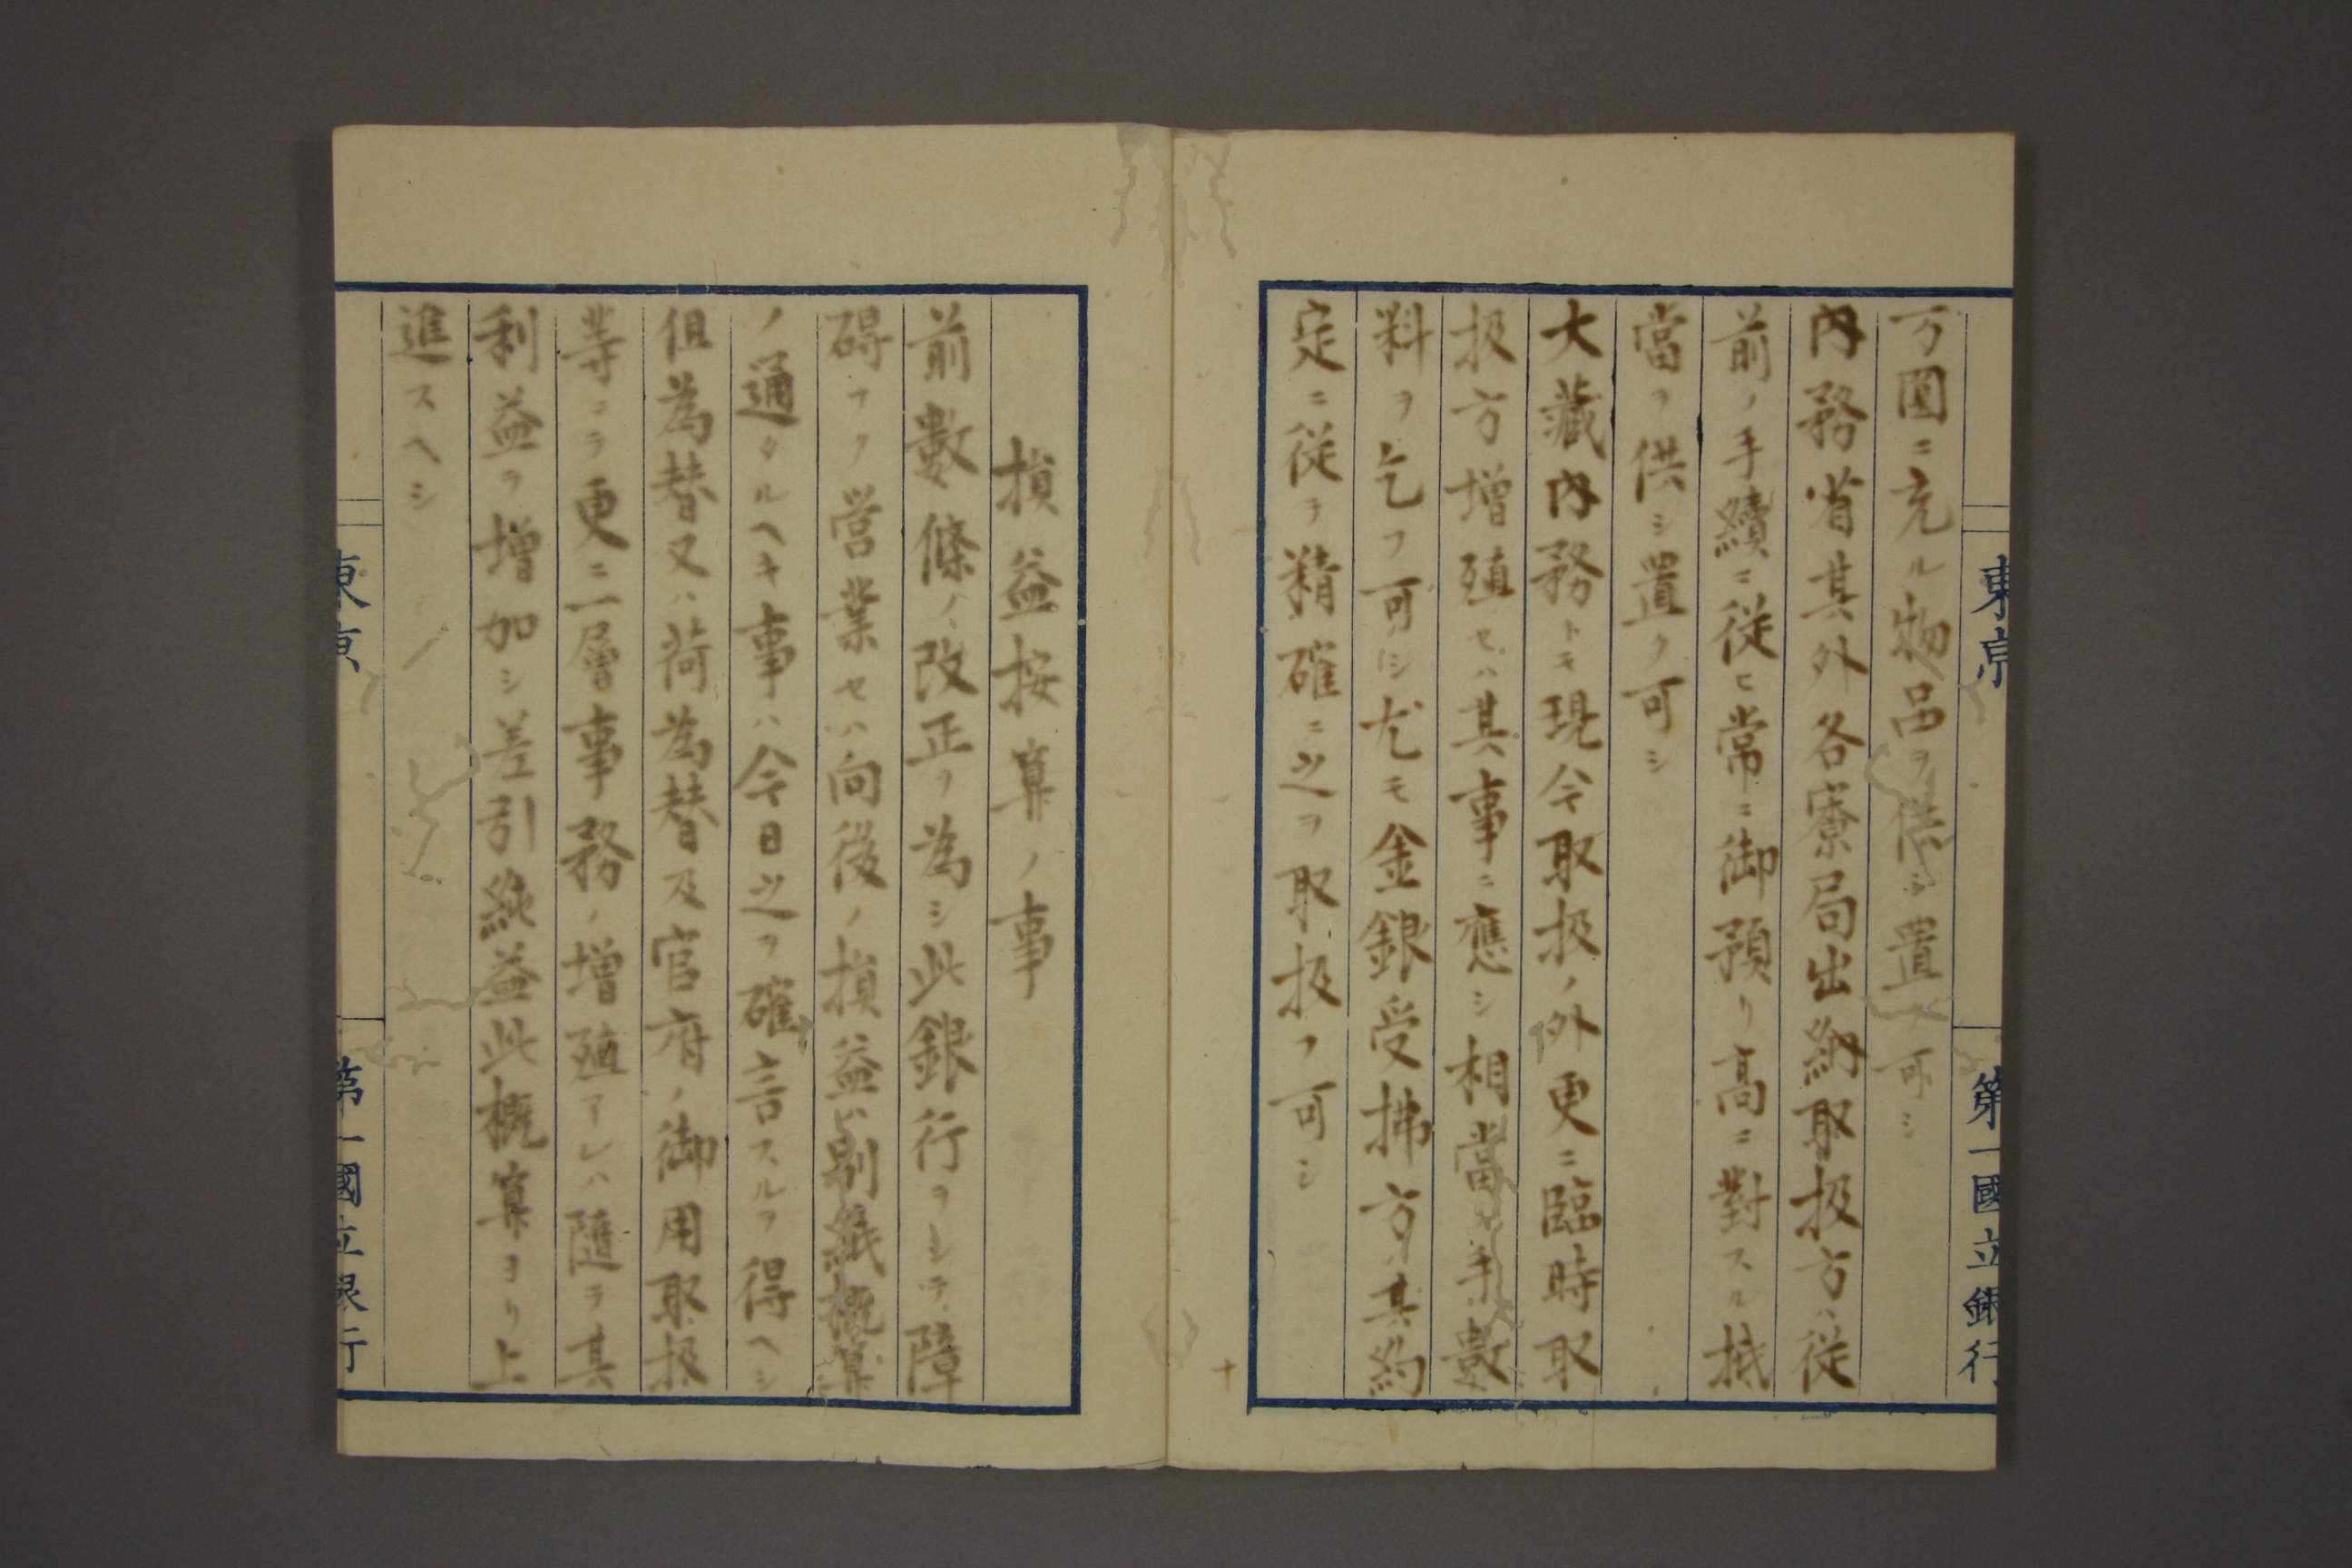 万圓ニ充ル物品ヲ供シ置ク可シ
内務省其外各寮局出納取扱方ハ従
前ノ手續ニ従ヒ常ニ御預リ高ニ對スル抵
當ヲ供シ置ク可シ
大藏内務トモ現今取扱ノ外更ニ臨時取
扱方増殖セハ其事ニ應シ相當ノ手數
料ヲ乞フ可シ尤モ金銀受拂方ハ其約
定ニ従テ精確ニ之ヲ取扱フ可シ
東京
第一國立銀行
十
損益按算ノ事
前數條ノ改正ヲ為シ此銀行ヲシテ障
碍ナク営業セハ向後ノ損益ハ別紙概算
ノ通タルヘキ事ハ今日之ヲ確言スルヲ得ヘシ
但為替又ハ荷為替及官府ノ御用取扱
等ニテ更ニ一層事務ノ増殖アレハ隨テ其
利益ヲ増加シ差引純益此概算ヨリ上
進スヘシ
東京
第一國立銀行